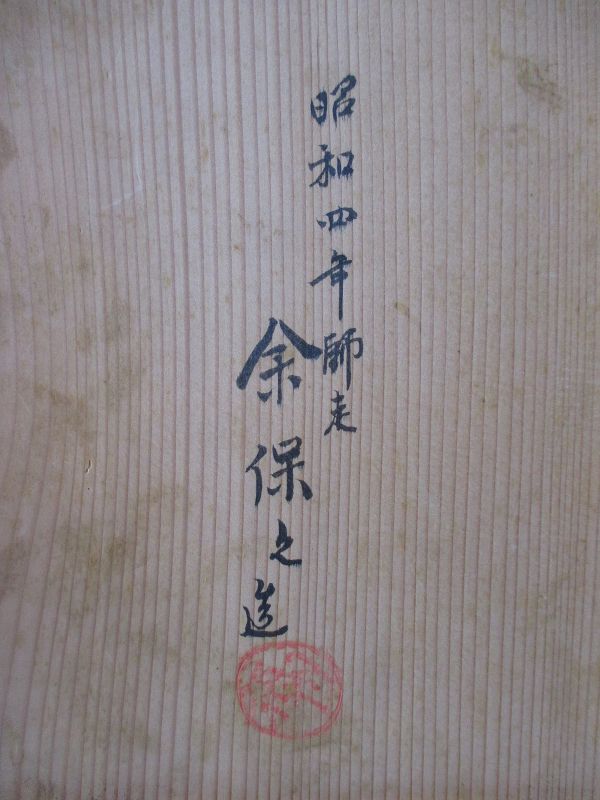 昭和四年師走
余保之造